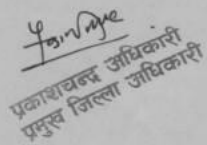 प्रकाशचन्द्र अधिकारी
प्रमुख जिल्ला अधिकारी